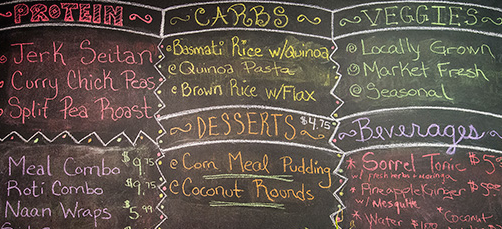 PROTEIN
Jerk Seitan
Curry Chick Peas
Split Pea Roast
Meal Combo $9.75
Roti Combo $9.75
Naan Wraps $5.99
CARBS
Basmati Rice w/Quinoa
Quinoa Pasta
Brown Rice w/Flax
DESSERTS $4.75
Corn Meal Pudding
Coconut Rounds
VEGGIES
Locally Grown
Market Fresh
Seasonal
Beverages
Sorrel Tonic $5
w/ Fresh herbs + Moringa
Pineapple Ginger
w/ Mesquite
Water
Coconut